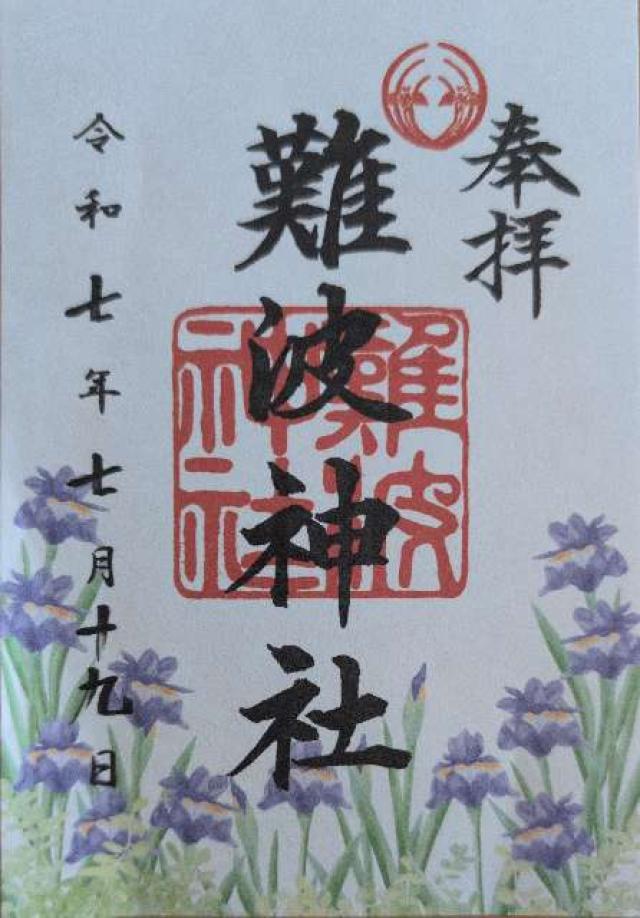 奉拝
難波神社
難波神社
令和七年七月十九日